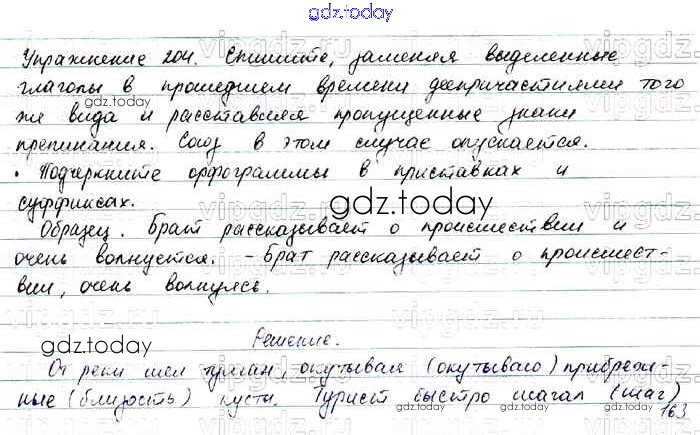 gdz.today
Упражнение 204. Спишите, заменяя выделенные
глаголы в прошедшем времени деепричастиями того
же вида и расставляя пропущенные знаки
препинания. Союз в этом случае опускается.
• Подчеркните орфограммы в приставках и
суффиксах.
Образец. Брат рассказывает о происшествии и
очень волнуется. - Брат рассказывает о происшест-
вии, очень волнуясь.
Решение.
От реки шел туман, окутывая (окутываю) прибреж-
ные (близость) кусты. Турист быстро шагал (шаг)
163